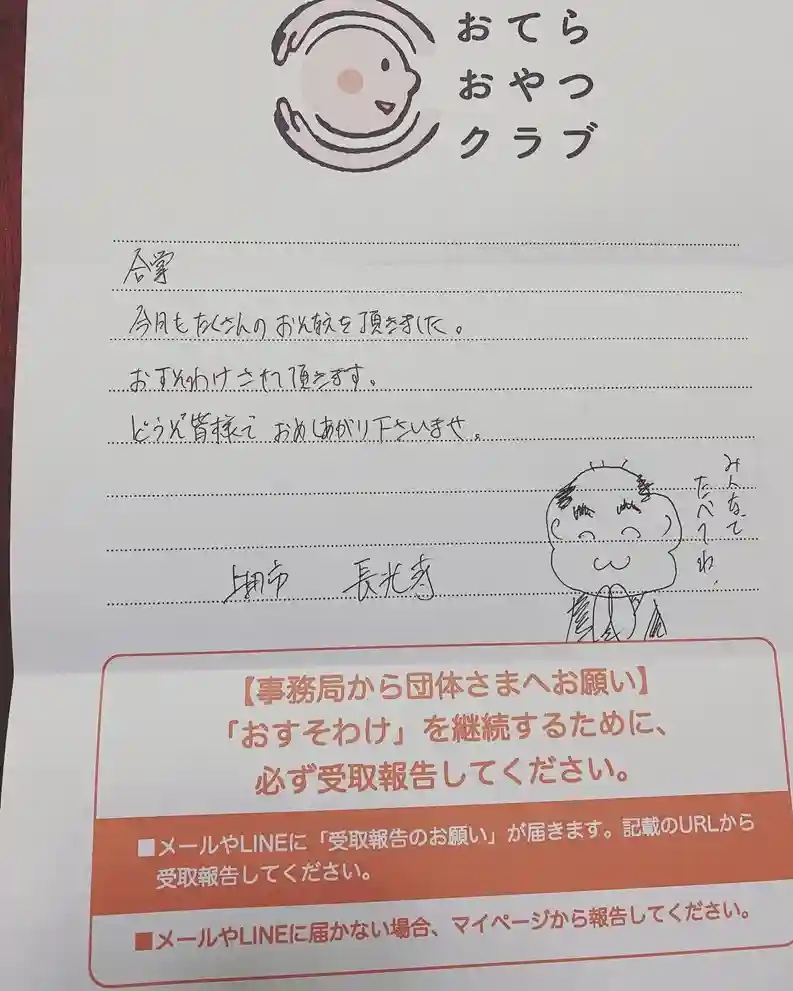 おてら
おやつ
クラブ
合掌
今月もたくさんのおそなえを頂きました。
おすそわけさせて頂きます。
どうぞ皆様で おめしあがり下さいませ。
みんなで
たべてね!
上田市 長光寺
【事務局から団体さまへお願い】
「おすそわけ」を継続するために、
必ず受取報告してください。
■メールやLINEに「受取報告のお願い」が届きます。記載のURLから
受取報告してください。
■メールやLINEに届かない場合、マイページから報告してください。